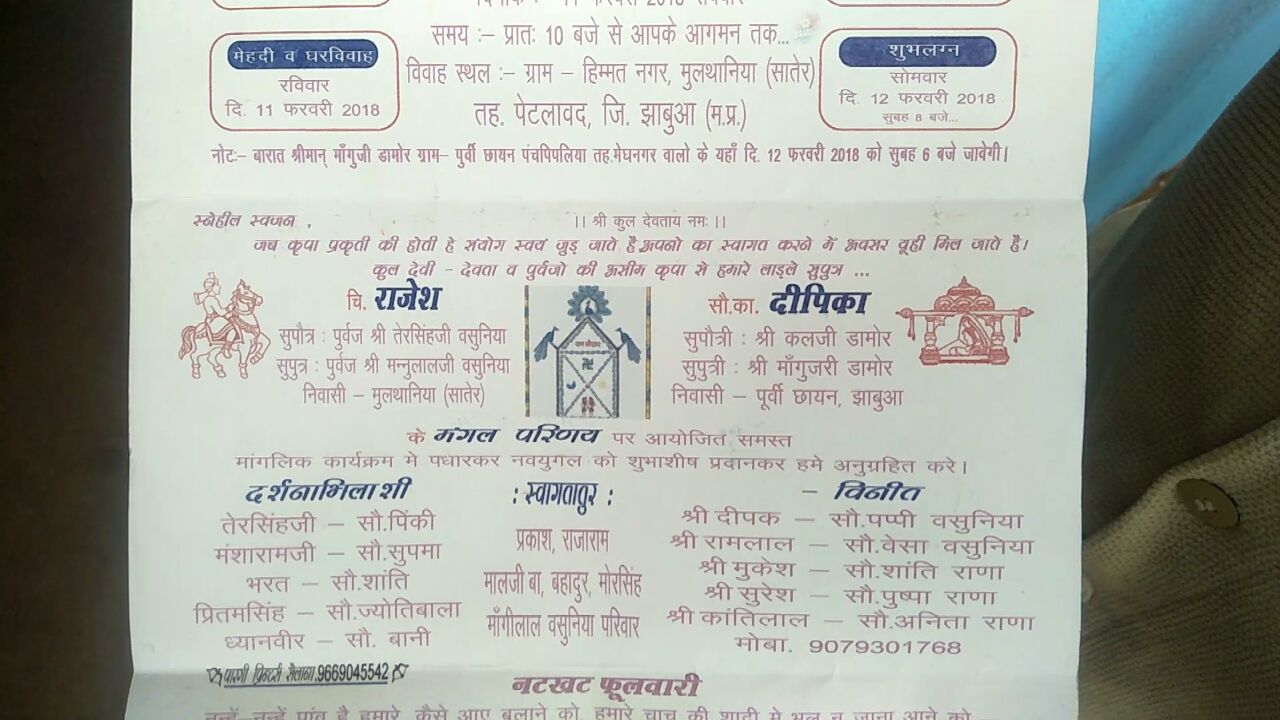 11 फरवरी 2018
समय :– प्रातः 10 बजे से आपके आगमन तक...
मेहदी व घरविवाह
रविवार
दि. 11 फरवरी 2018
विवाह स्थल :– ग्राम – हिम्मत नगर, मुलथानिया (सातेर)
तह. पेटलावद, जि. झाबुआ (म.प्र.)
शुभलग्न
सोमवार
दि. 12 फरवरी 2018
सुबह 8 बजे...
नोटः– बारात श्रीमान् माँगुजी डामोर ग्राम– पुर्वी छायन पंचपिपलिया तह.मेघनगर वालो के यहाँ दि. 12 फरवरी 2018 को सुबह 6 बजे जावेगी।
स्नेहील स्वजन ,
।। श्री कुल देवताय नमः ।।
जब कृपा प्रकृती की होती हे संयोग स्वयं जुड़ जाते है अपनो का स्वागत करने में अवसर यूही मिल जाते है।
कुल देवी – देवता व पुर्वजो की असीम कृपा से हमारे लाड़ले सुपुत्र ...
चि. राजेश
सुपौत्र : पुर्वज श्री तेरसिंहजी वसुनिया
सुपुत्र : पुर्वज श्री मन्नुलालजी वसुनिया
निवासी – मुलथानिया (सातेर)
सौ.का. दीपिका
सुपौत्री : श्री कलजी डामोर
सुपुत्री : श्री माँगुजरी डामोर
निवासी – पूर्वी छायन, झाबुआ
के मंगल परिणय पर आयोजित समस्त
मांगलिक कार्यक्रम मे पधारकर नवयुगल को शुभाशीष प्रदानकर हमे अनुग्रहित करे।
दर्शनाभिलाशी
तेरसिंहजी – सौ.पिंकी
मंशारामजी – सौ.सुपमा
भरत – सौ.शांति
प्रितमसिंह – सौ.ज्योतिबाला
ध्यानवीर – सौ. बानी
: स्वागतातुर :
प्रकाश, राजाराम
मालजी बा, बहादुर, मोरसिंह
माँगीलाल वसुनिया परिवार
– विनीत
श्री दीपक – सौ.पप्पी वसुनिया
श्री रामलाल – सौ.वेसा वसुनिया
श्री मुकेश – सौ.शांति राणा
श्री सुरेश – सौ.पुष्पा राणा
श्री कांतिलाल – सौ.अनिता राणा
मोबा. 9079301768
पारगी प्रिन्टर्स सैलाना.9669045542
नटखट फूलवारी
नन्हें–नन्हें पांव है हमारे, कैसे आए बुलाने को, हमारे चाचु की शादी मे भुल न जाना आने को